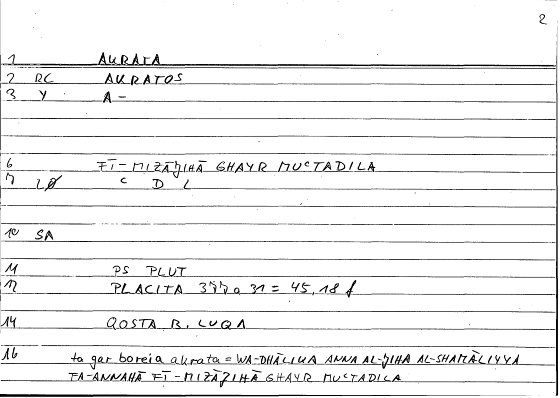 2
1 AKRATA
2 RC AKRATOS
3 Y A-
6 FĪ-MIZĀǦIHĀ GHAYR MUʿTADILA
7 LØ C D L
10 SA
11 PS PLUT
12 PLACITA 377a 31 = 45,18 f
14 QOSTA B. LUQA
16 ta gar boreia akrata = WA-DHĀLIKA ANNA AL-ǦIHA AL-SHAMĀLIYYA
FA-ANNAHĀ FĪ-MIZĀǦIHĀ GHAYR MUʿTADILA